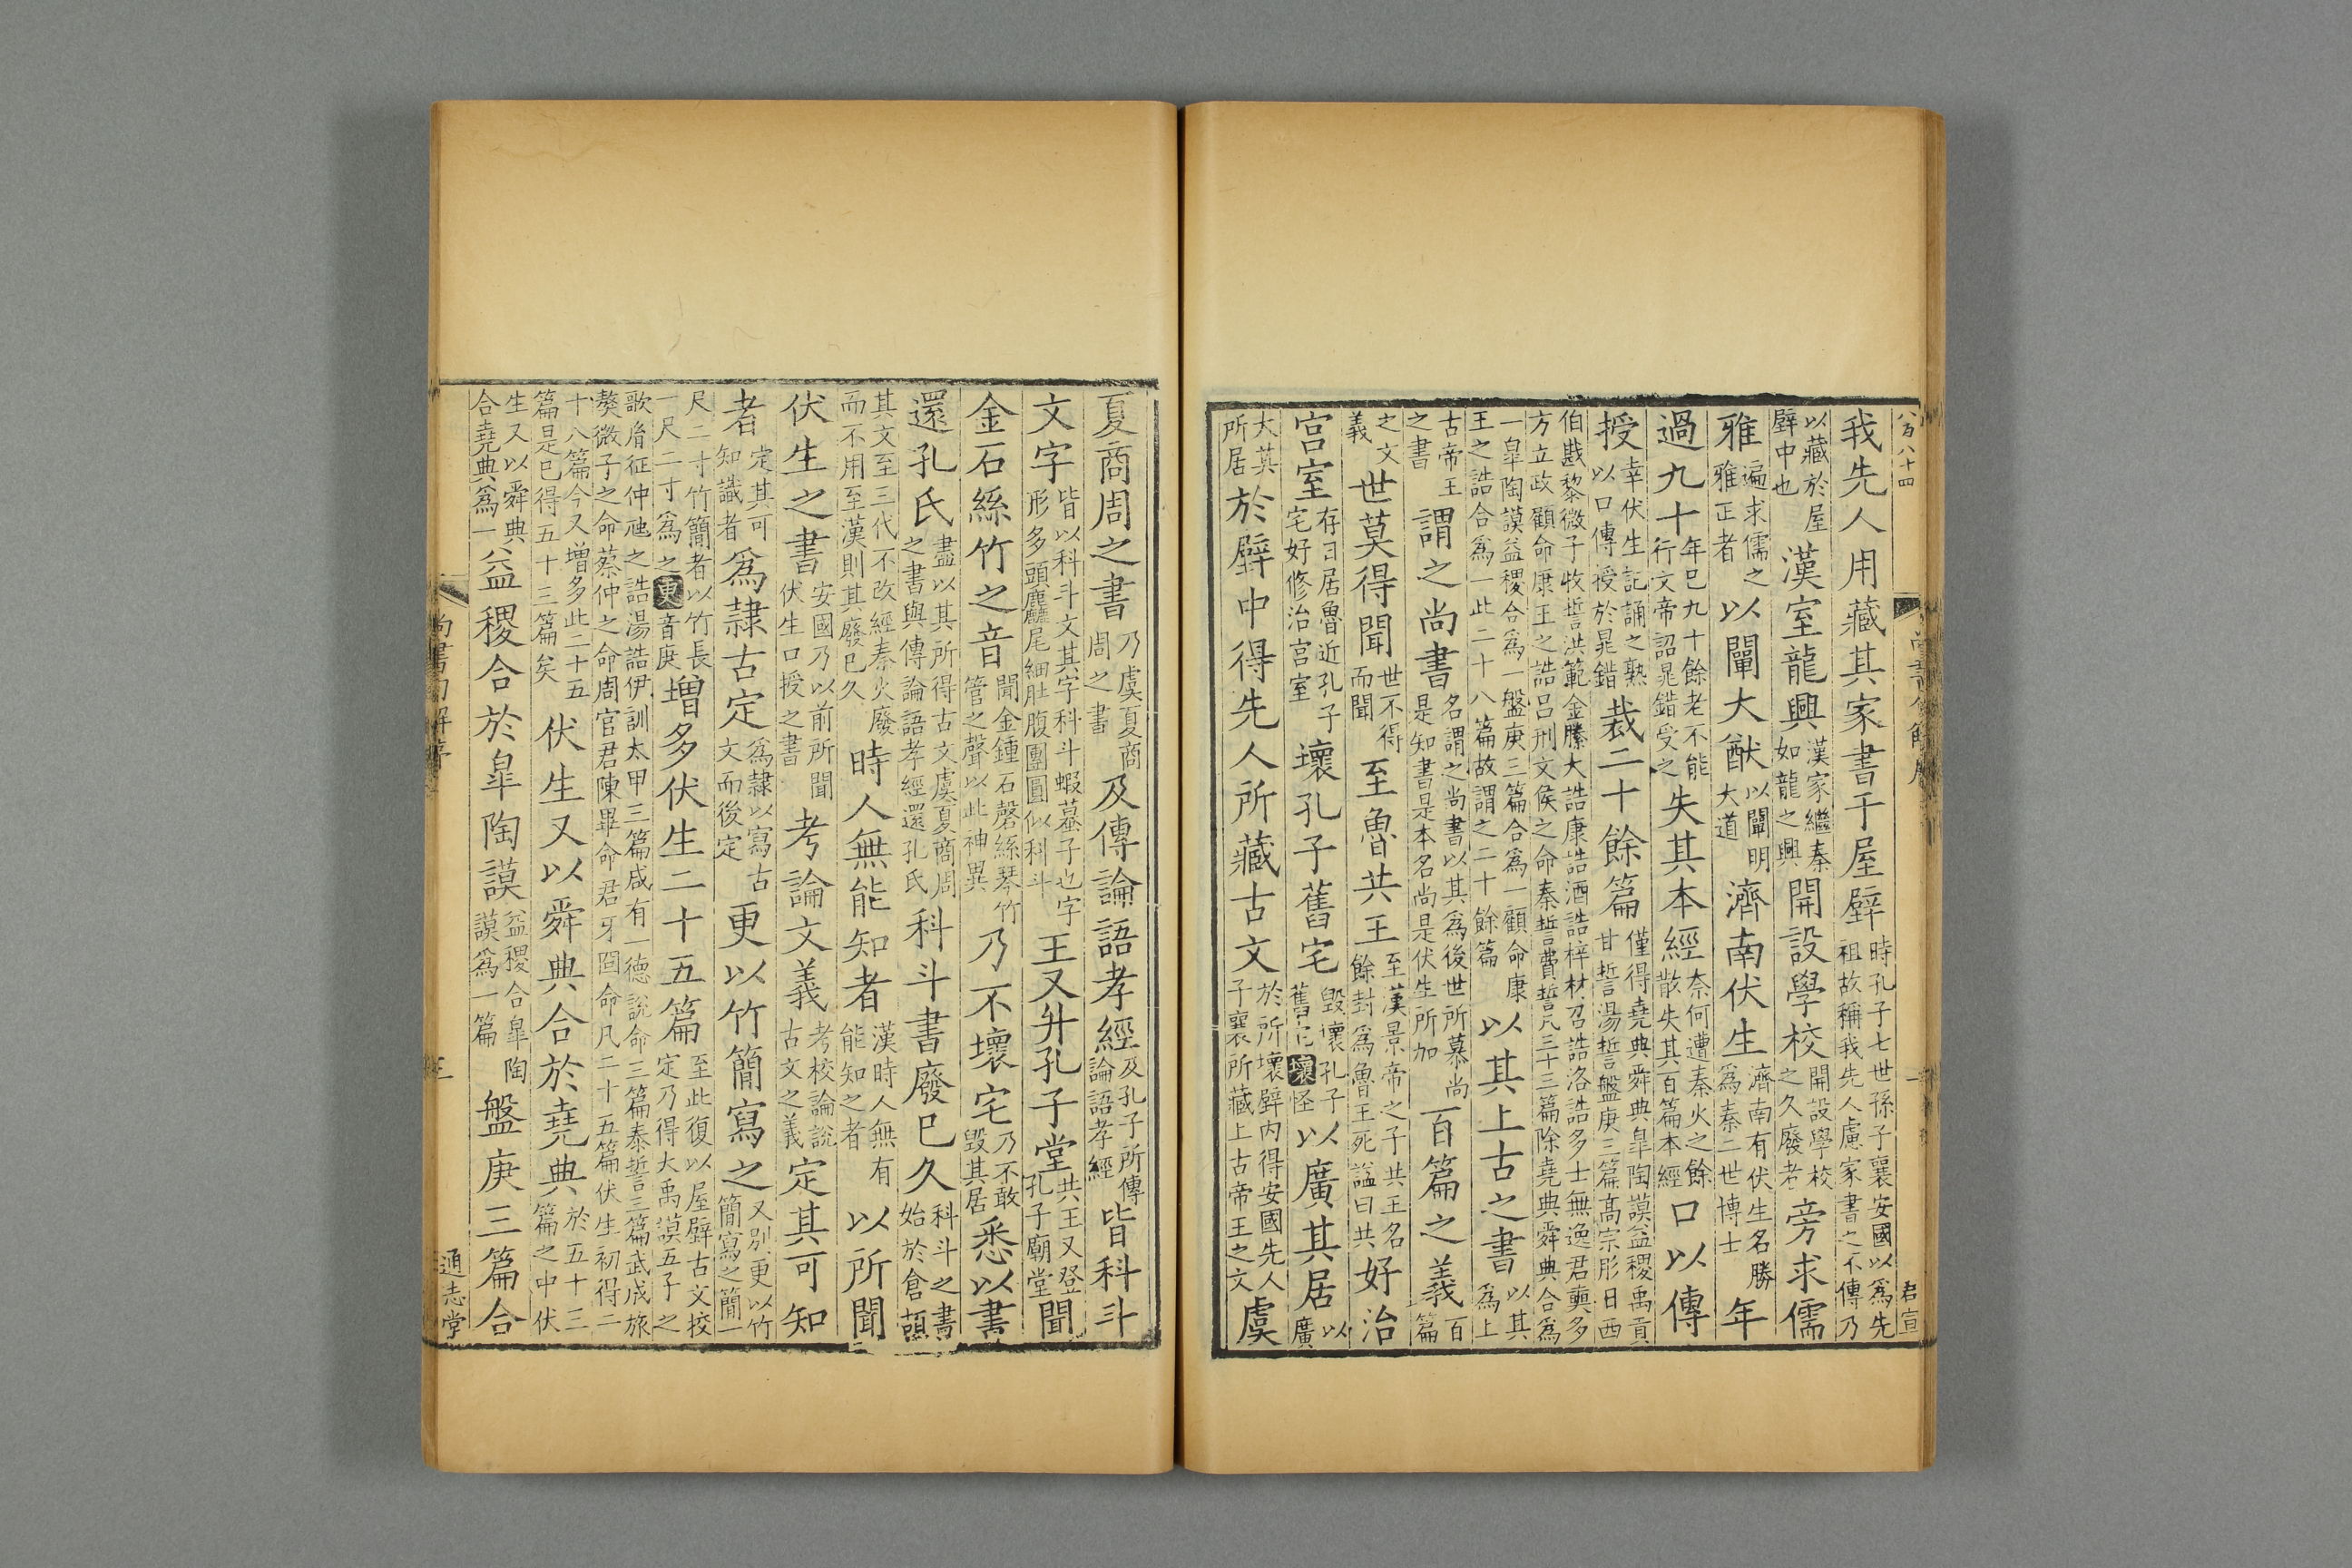 八百八十四
君宣
我先人用藏其家書于屋壁時孔子七世孫子襄安國以爲先祖故稱我先人慮家書之不傳乃
以藏於屋壁中也漢室龍興漢家繼秦如龍之興開設學校開設學校之久廢者旁求儒
雅遍求儒之雅正者以闡大猷以闡明大道濟南伏生濟南有伏生名勝爲秦二世博士年
過九十年已九十餘老不能行文帝詔晁錯受之失其本經奈何遭秦火之餘散失其百篇本經口以傳
授幸伏生記誦之熟以口傳授於晁錯裁二十餘篇僅得堯典舜典臯陶謨益稷禹貢甘誓湯誓盤庚三篇高宗肜日西
伯戡黎微子牧誓洪範金縢大誥康誥酒誥梓材召誥洛誥多士無逸君奭多方立政顧命康王之誥呂刑文侯之命秦誓費誓凡三十三篇除堯典舜典合爲
一臯陶謨益稷合爲一盤庚三篇合爲一顧命康王之誥合爲一此二十八篇故謂之二十餘篇以其上古之書以其爲上
古帝王之書謂之尚書名謂之尚書以其爲後世所慕尚是知書是本名尚是伏生所加百篇之義百篇
之文義世莫得聞世不得而聞至魯共王至漢景帝之子共王名餘封爲魯王死謚曰共好治
宮室存日居魯近孔子宅好修治宮室壞孔子舊宅毀壞孔子舊宅壞怪以廣其居以廣
大其所居於壁中得先人所藏古文於所壞壁內得安國先人子襄所藏上古帝王之文虞
夏商周之書乃虞夏商周之書及傳論語孝經及孔子所傳論語孝經皆科斗
文字皆以科斗文其字科斗蝦蟇子也字形多頭麤尾細肚腹團圓似科斗王又升孔子堂共王又登孔子廟堂聞
金石絲竹之音聞金鍾石磬絲琴竹管之聲以此神異乃不壞宅乃不敢毀其居悉以書
還孔氏盡以其所得古文虞夏商周之書與傳論語孝經還孔氏科斗書廢已久科斗之書始於倉頡
其文至三代不改經秦火廢而不用至漢則其廢已久時人無能知者漢時人無有能知之者以所聞
伏生之書安國乃以前所聞伏生口授之書考論文義考校論說古文之義定其可知
者定其可知識者爲隸古定爲隸以寫古文而後定更以竹簡寫之又別更以竹簡寫之簡一
尺二寸竹簡者以竹長一尺二寸爲之更音庚增多伏生二十五篇至此復以屋壁古文挍定乃得大禹謨五子之
歌胤征仲虺之誥湯誥伊訓太甲三篇咸有一德說命三篇泰誓三篇武成旅獒微子之命蔡仲之命周官君陳畢命君牙冏命凡二十五篇伏生初得二
十八篇今又增多此二十五篇是已得五十三篇矣伏生又以舜典合於堯典於五十三篇之中伏
生又以舜典合堯典爲一益稷合於臯陶謨益稷合臯陶謨爲一篇盤庚三篇合
尚書句解序
通志堂